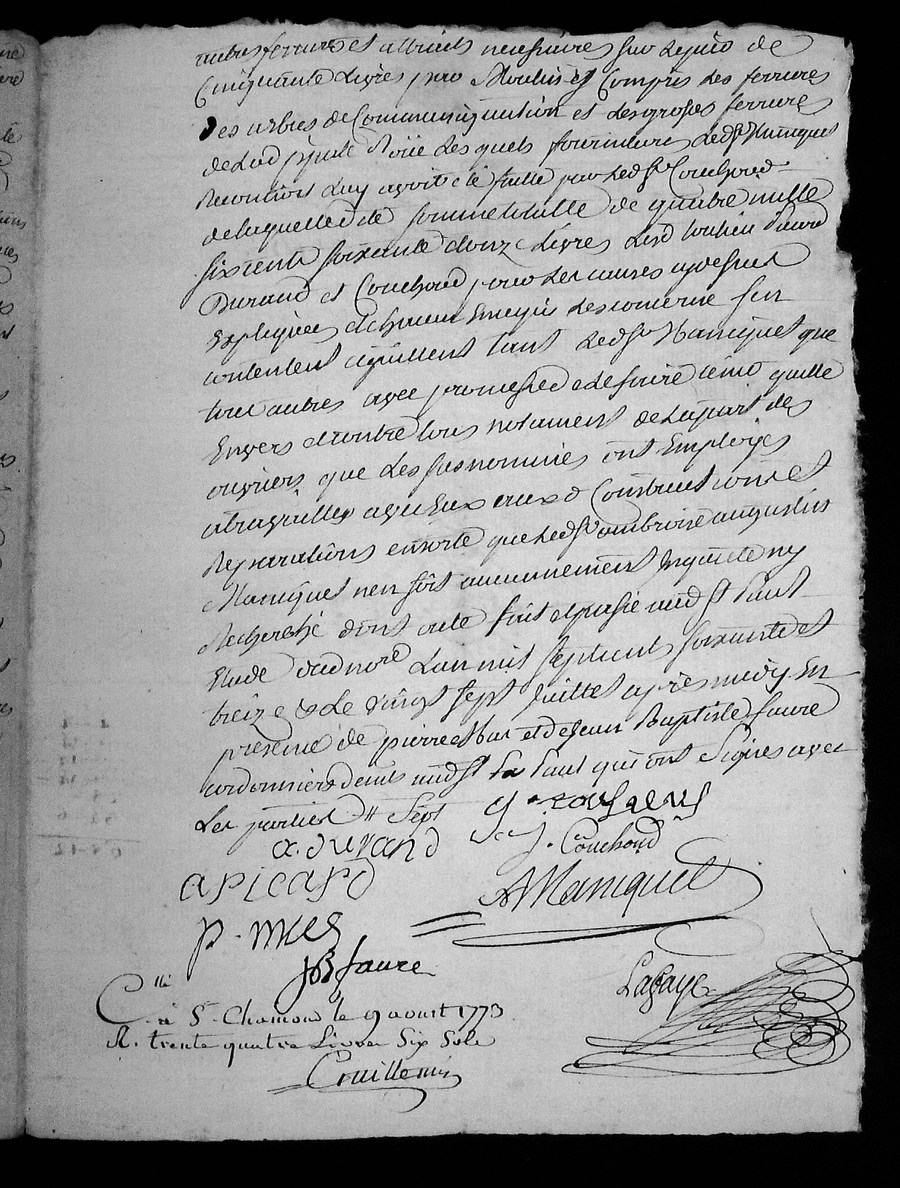 autres ferrures et attraits necessaires sur le pied de
Cinquante Livres par Moulin y Compris les ferrures
des arbres de Communiquation et les groses ferrures
de Lad roüe Lesquels fournitures Led Sr Maniquet
Reconnoit Luy avoir été faitte par led Sr Couchoud
de laquelle dte somme totalle de quatre mille
six cent soixante douze Livres Lesd
Durand et Couchoud pour les causes
Expliquées et chacun En ce qui les concerne sen
contentent quittent tant Led Sr Maniquet que
tout autres avec promesse de le faire tenir quitte
Envers et contre tous notament de la part des
ouvriers que Les susnommés ont Employés
a travailler avec Eux auxd Constructions et
Reparations ensorte que Led Sr ambroise augustin
Maniquet nen soit aucunnement Inquieté ny
Recherché dont acte fait et passé aud St Paul
Etude dud nore Lan mil sept cent soixante et
treize & Le vingt sept Juillet apres midy En
presence de pierre et de Jean Baptiste faure
cordonniers demts aud St Paul qui ont Signés avec
Les parties Sept
a. durand J. Couchoud
a picard AManiquet
p.
JB faure Lafaye
Cllé
à St Chamond le 9 aoust 1773
R. trente quatre Livres Six Sols